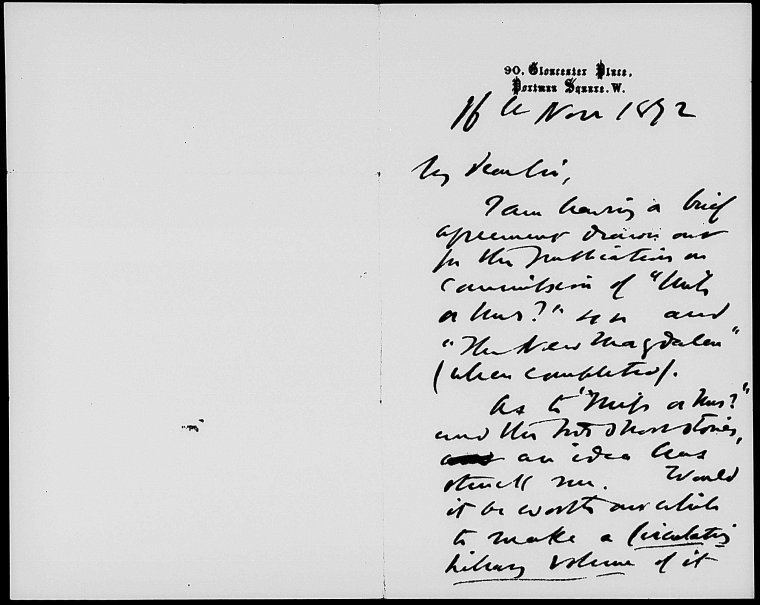 90, Gloucester Place,
Portman Square. W.
16th Nov 1872
My dear Sir,
I am having a brief
agreement drawn out
for the publication on
commission of "Miss
or Mrs?" and
"The New Magdalen"
(when completed).
As to "Miss or Mrs?"
and the two short stories,
an idea has
struck me. Would
it be worth our while
to make a Circulating
Library volume of it